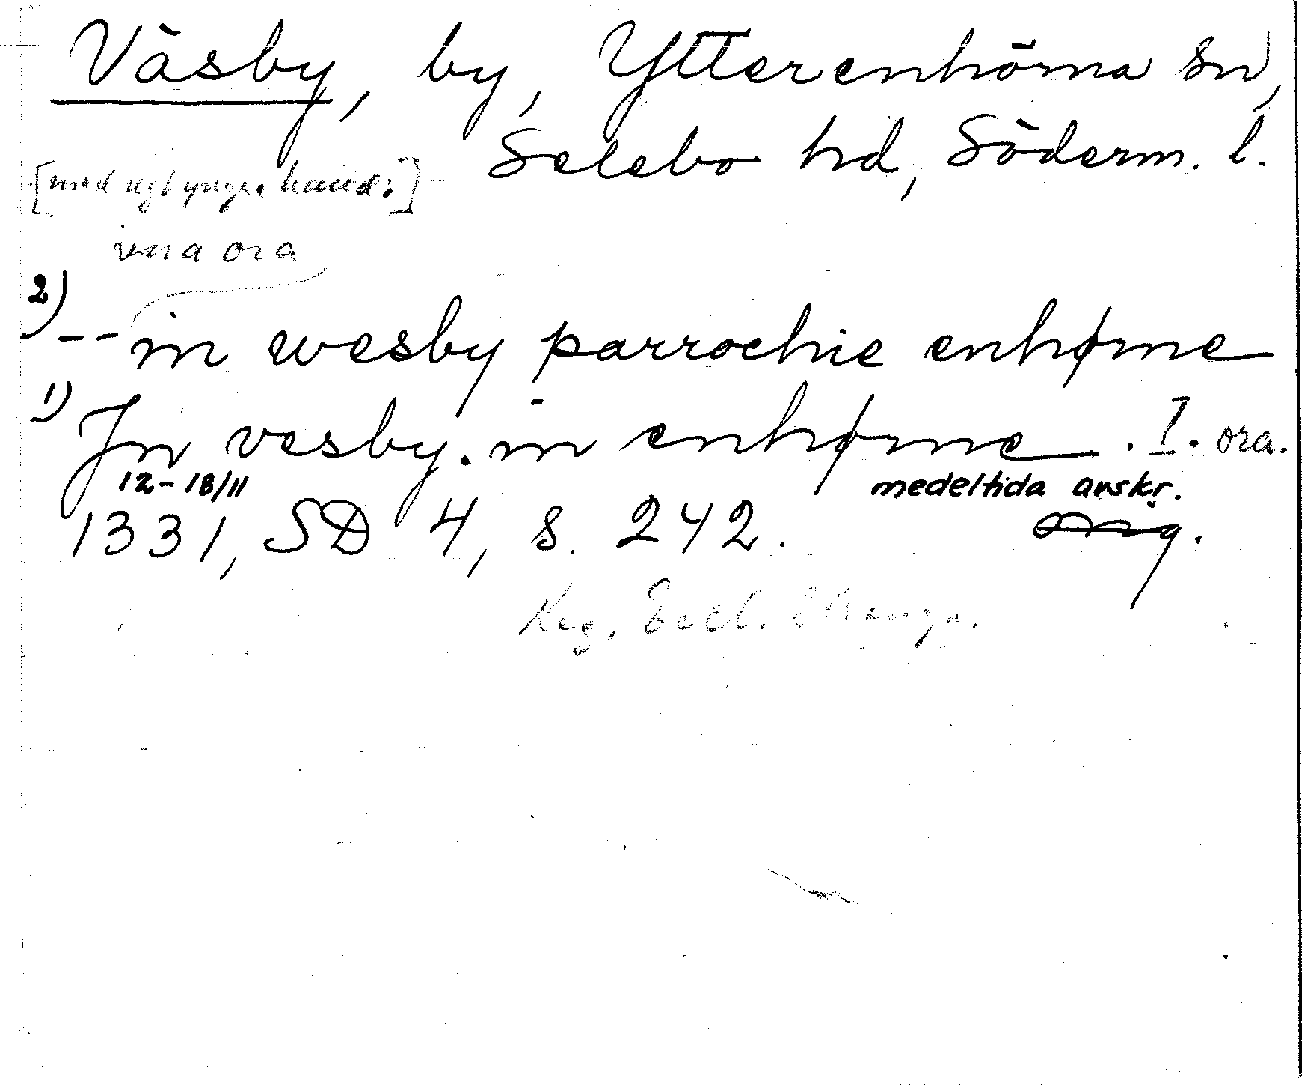 Väsby, by, Ytterenhörna sn,
Selebo hd, Söderm. l.
[med ngt yngre hand:]
una ora
2) -- in wesby parrochie enhørne
1) Jn vesby. in enhørne . I. ora.
12-18/11 medeltida avskr.
1331, SD 4, s. 242.
Reg. Eccl. Strengn.